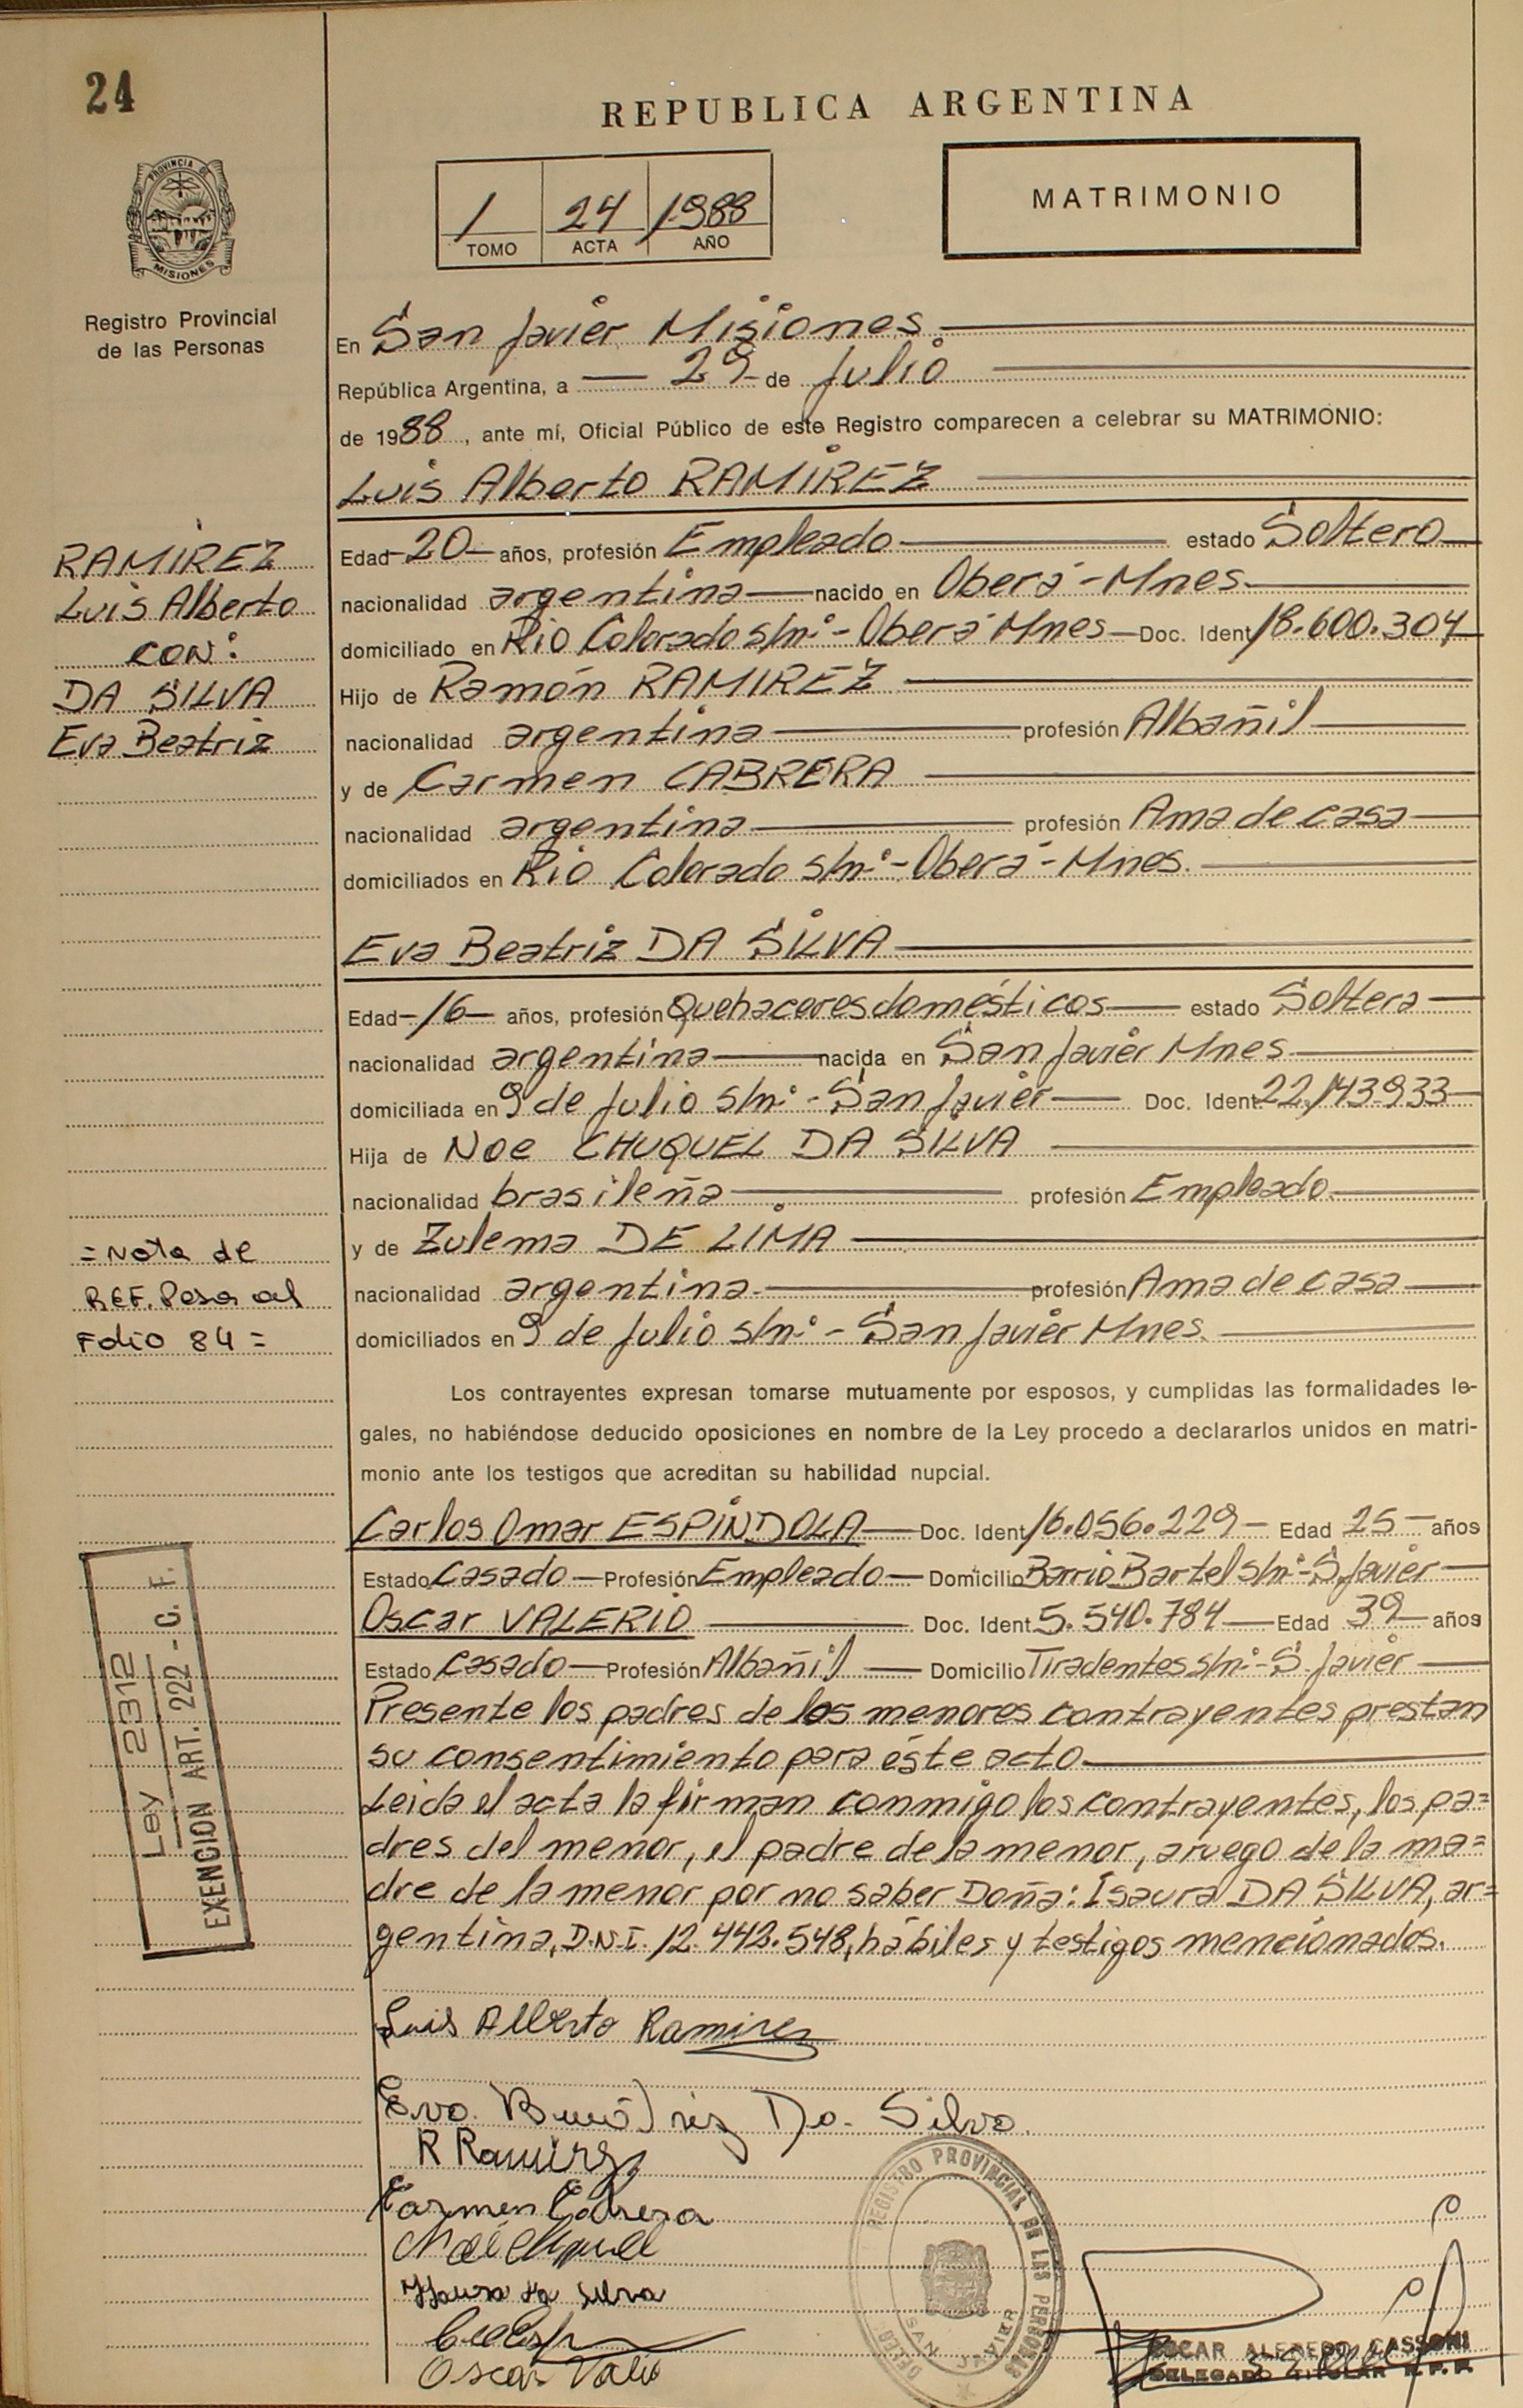 24
REPUBLICA ARGENTINA
PROVINCIA DE
MISIONES
Registro Provincial
de las Personas
1 24 1988
TOMO ACTA AÑO
MATRIMONIO
En San Javier Misiones
República Argentina, a 29 de Julio
de 1988, ante mí, Oficial Público de este Registro comparecen a celebrar su MATRIMONIO:
Luis Alberto RAMIREZ
RAMIREZ
Luis Alberto
CON:
DA SILVA
Eva Beatriz
Edad 20 años, profesión Empleado estado Soltero
nacionalidad argentina nacido en Oberá - Mnes
domiciliado en Rio Colorado s/nº - Oberá Mnes Doc. Ident 18.600.304
Hijo de Ramón RAMIREZ
nacionalidad argentina profesión Albañil
y de Carmen CABRERA
nacionalidad argentina profesión Ama de casa
domiciliados en Rio Colorado s/nº - Oberá - Mnes.
Eva Beatriz DA SILVA
Edad 16 años, profesión Quehaceres domésticos estado Soltera
nacionalidad argentina nacida en San Javier Mnes
domiciliada en 9 de Julio s/nº - San Javier Doc. Ident. 22.143.933
Hija de Noe CHUQUEL DA SILVA
nacionalidad brasileña profesión Empleado
y de Zulema DE LIMA
nacionalidad argentina profesión Ama de casa
domiciliados en 9 de Julio s/nº - San Javier Mnes
= Nota de
REF. Pasa al
Folio 84 =
Los contrayentes expresan tomarse mutuamente por esposos, y cumplidas las formalidades le-
gales, no habiéndose deducido oposiciones en nombre de la Ley procedo a declararlos unidos en matri-
monio ante los testigos que acreditan su habilidad nupcial.
Carlos Omar ESPINDOLA Doc. Ident 16.056.229 Edad 25 años
Estado Casado Profesión Empleado Domicilio Barrio Bartel s/nº - S. Javier
Oscar VALERIO Doc. Ident 5.540.784 Edad 39 años
Estado Casado Profesión Albañil Domicilio Tiradentes s/nº - S. Javier
Presente los padres de los menores contrayentes prestan
su consentimiento para éste acto
Leida el acta la firman conmigo los contrayentes, los pa=
dres del menor, el padre de la menor, a ruego de la ma=
dre de la menor por no saber Doña: Isaura DA SILVA, ar=
gentina, D.N.I. 12.442.548, hábiles y testigos mencionados.
Ley 2312
EXENCION ART. 222 - C. F.
Luis Alberto Ramirez
Eva Beatriz Da Silva
R Ramirez
Carmen Cabrera
Noé Chuquel
Isaura da Silva
Oscar Valerio
REGISTRO PROVINCIAL DE LAS PERSONAS
SAN JAVIER
OSCAR ALFREDO CASSONI
DELEGADO TITULAR R. P. P.